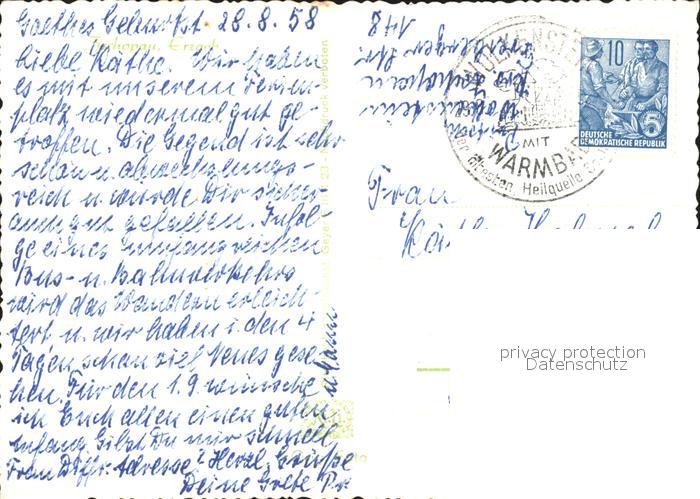 Goethes Geburtst. 28.8.58
Liebe Käthe. Wir haben
es mit unserem Ferien-
platz wiedermal gut ge-
troffen. Die Gegend ist sehr
schön u. abwechslungs-
reich u. würde Dir sicher
auch gut gefallen. Infol-
ge eines umfangreichen
Bus- u. Bahnverkehrs
wird das Wandern erleich-
tert u. wir haben i. den 4
Tagen schon viel Neues gese-
hen. Für den 1.9. wünsche
ich Euch allen einen guten
Anfang. Gibst Du mir schnell
Frau Adresse? Herzl. Grüße
Deine Grete
u. Mann
Zschopau, Erzgeb.
148
MIT
WARMBAD
ältesten Heilquelle
10
DEUTSCHE
DEMOKRATISCHE REPUBLIK
5
Frau
privacy protection
Datenschutz